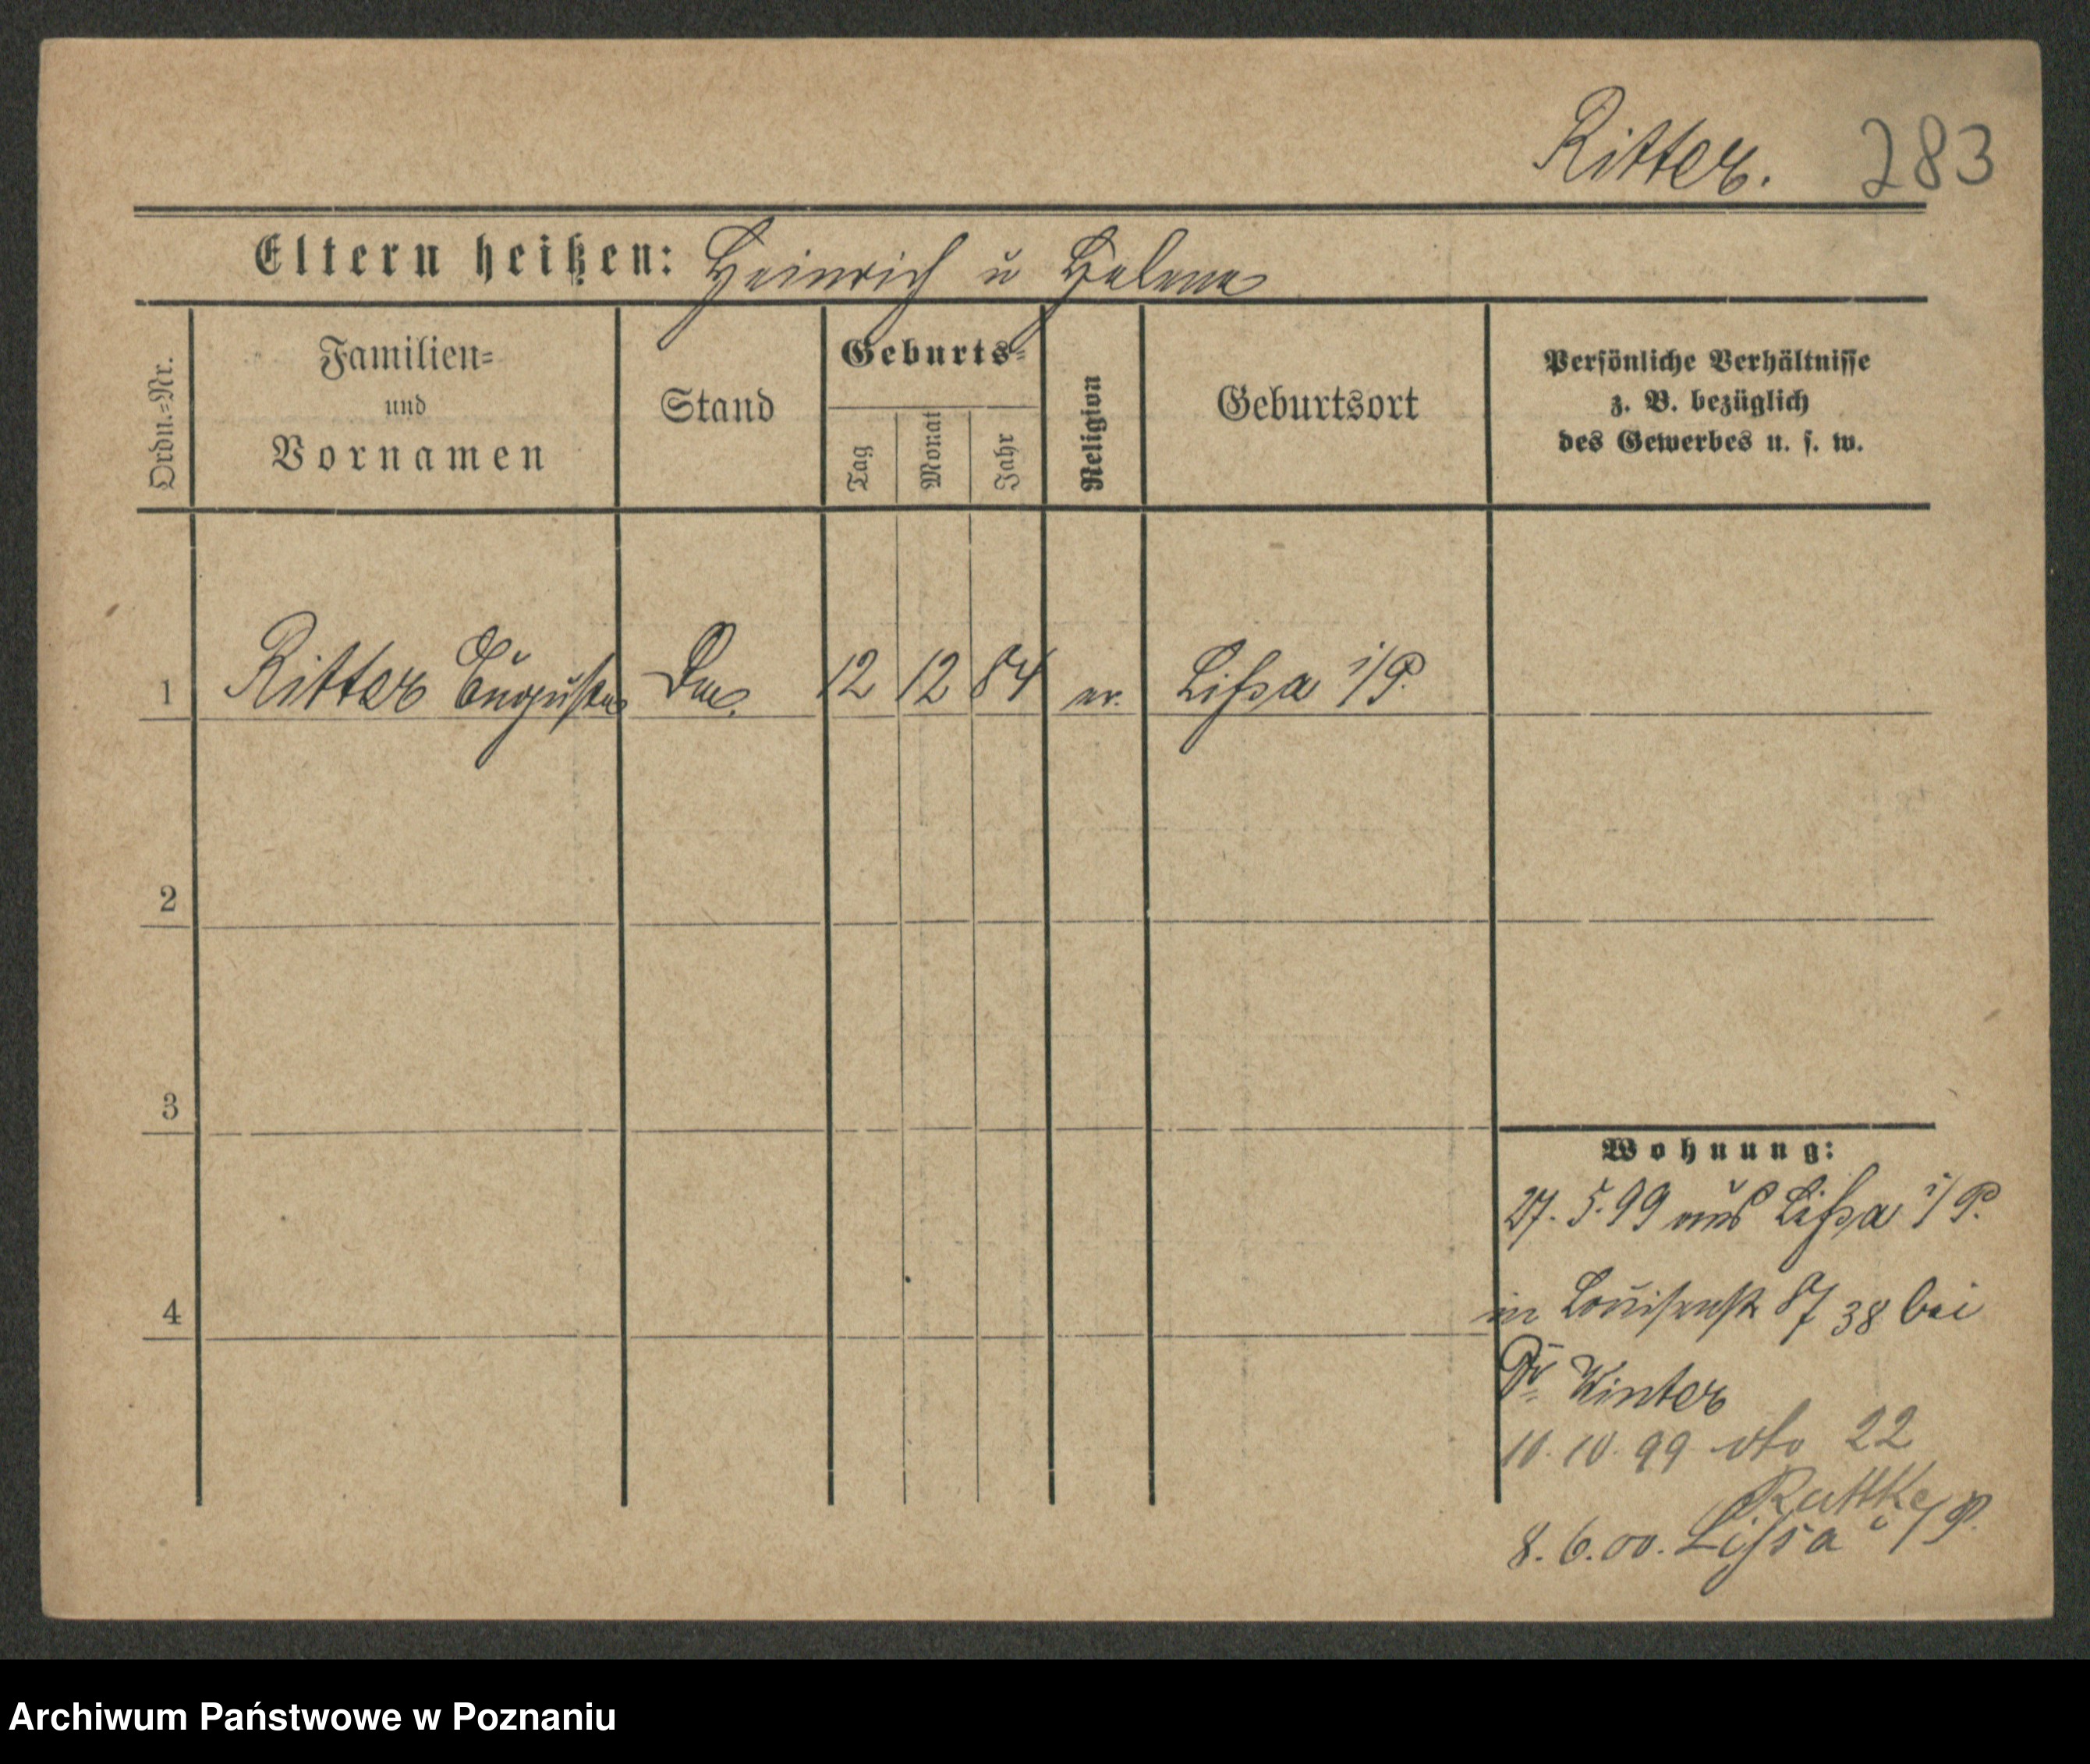 Ritter. 283
Eltern heißen: Heinrich u Helene
Ordn.=Nr.
Familien=
und
Vornamen
Stand
Geburts=
Tag
Monat
Jahr
Religion
Geburtsort
Persönliche Verhältnisse
z. B. bezüglich
des Gewerbes u. s. w.
1 Ritter Auguste 12 12 84 ev. Lissa i/P.
2
3
4
Wohnung:
27. 5. 99 aus Lissa i/P.
in Louisenstr 87 38 bei
Dr Winter
10. 10. 99 22
Rattke
8. 6. 00. Lissa i/P.
Archiwum Państwowe w Poznaniu